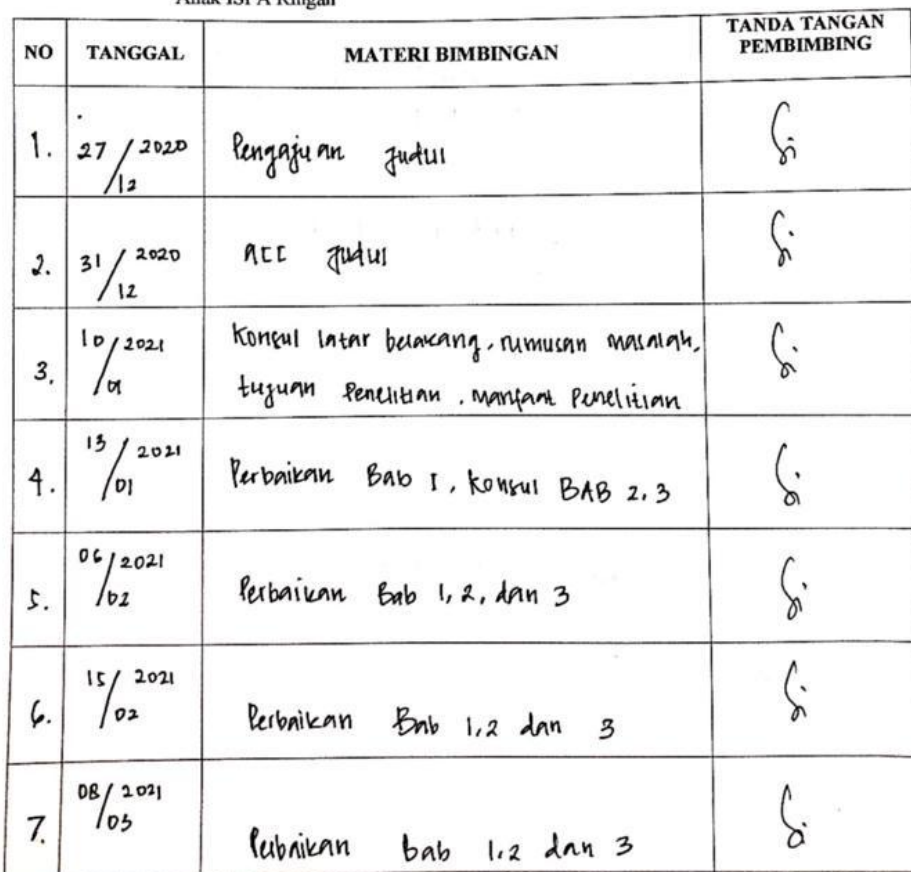 Anak ISPA Ringan
NO TANGGAL MATERI BIMBINGAN TANDA TANGAN PEMBIMBING
1. 27/12 2020 Pengajuan Judul
2. 31/12 2020 ACC Judul
3. 10/01 2021 Konsul latar belakang, rumusan masalah,
tujuan Penelitian, manfaat Penelitian
4. 13/01 2021 Perbaikan Bab I, Konsul BAB 2, 3
5. 06/02 2021 Perbaikan Bab 1, 2, dan 3
6. 15/02 2021 Perbaikan Bab 1,2 dan 3
7. 08/03 2021 Perbaikan bab 1,2 dan 3